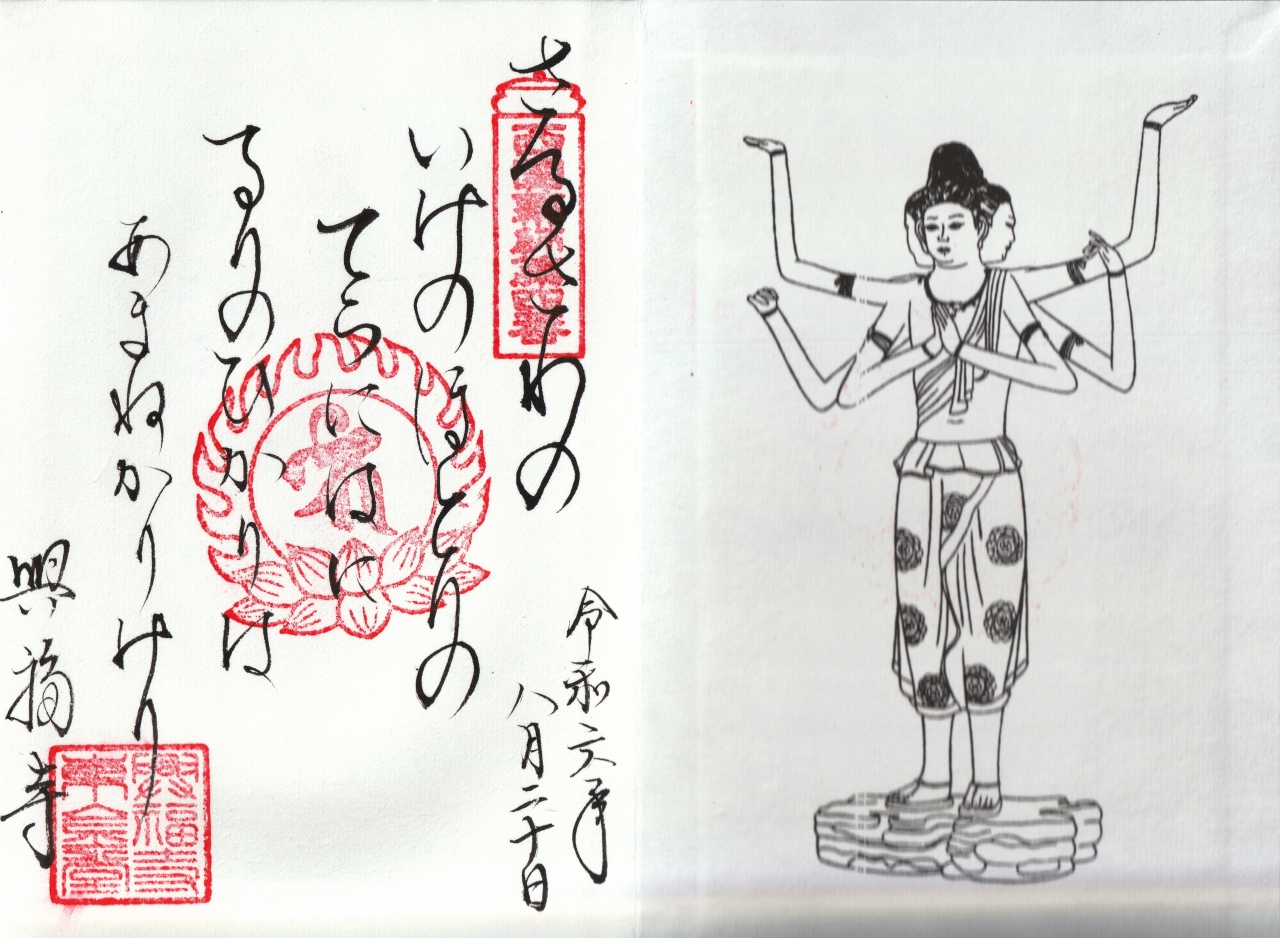 さるさわの
いけのほとりの
てらにはに
るりのひかりは
あまねかりけり
令和六年
八月二十日
興福寺
興福寺
東金堂